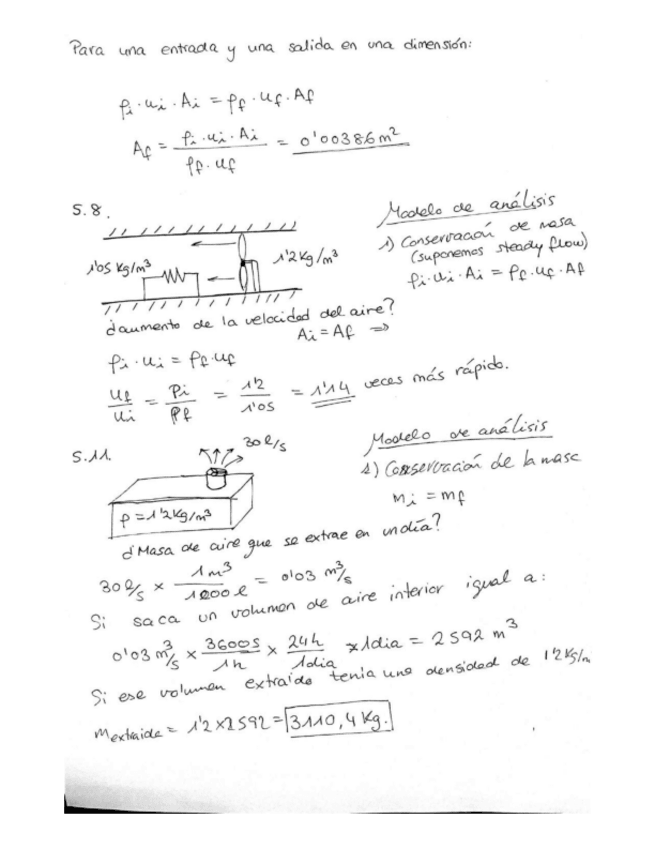 Para una entrada y una salida en una dimensión:
ρi · ui · Ai = ρf · uf · Af
Af = ρi · ui · Ai / ρf · uf = 0'00386 m²
5.8.
Modelo de análisis
1) Conservación de masa
(suponemos steady flow)
ρi · ui · Ai = ρf · uf · Af
1'05 Kg/m³
1'2 Kg/m³
¿aumento de la velocidad del aire?
Ai = Af ⇒
ρi · ui = ρf · uf
uf / ui = ρi / ρf = 1'2 / 1'05 = 1'14 veces más rápido.
5.11.
30 l/s
ρ = 1'2 Kg/m³
Modelo de análisis
1) Conservación de la masa
mi = mf
¿Masa de aire que se extrae en un día?
30 l/s × 1 m³ / 1000 l = 0'03 m³/s
Si saca un volumen de aire interior igual a:
0'03 m³/s × 3600s / 1h × 24h / 1dia × 1dia = 2592 m³
Si ese volumen extraido tenía una densidad de 1'2 Kg/m
m extraida = 1'2 × 2592 = 3110,4 Kg.